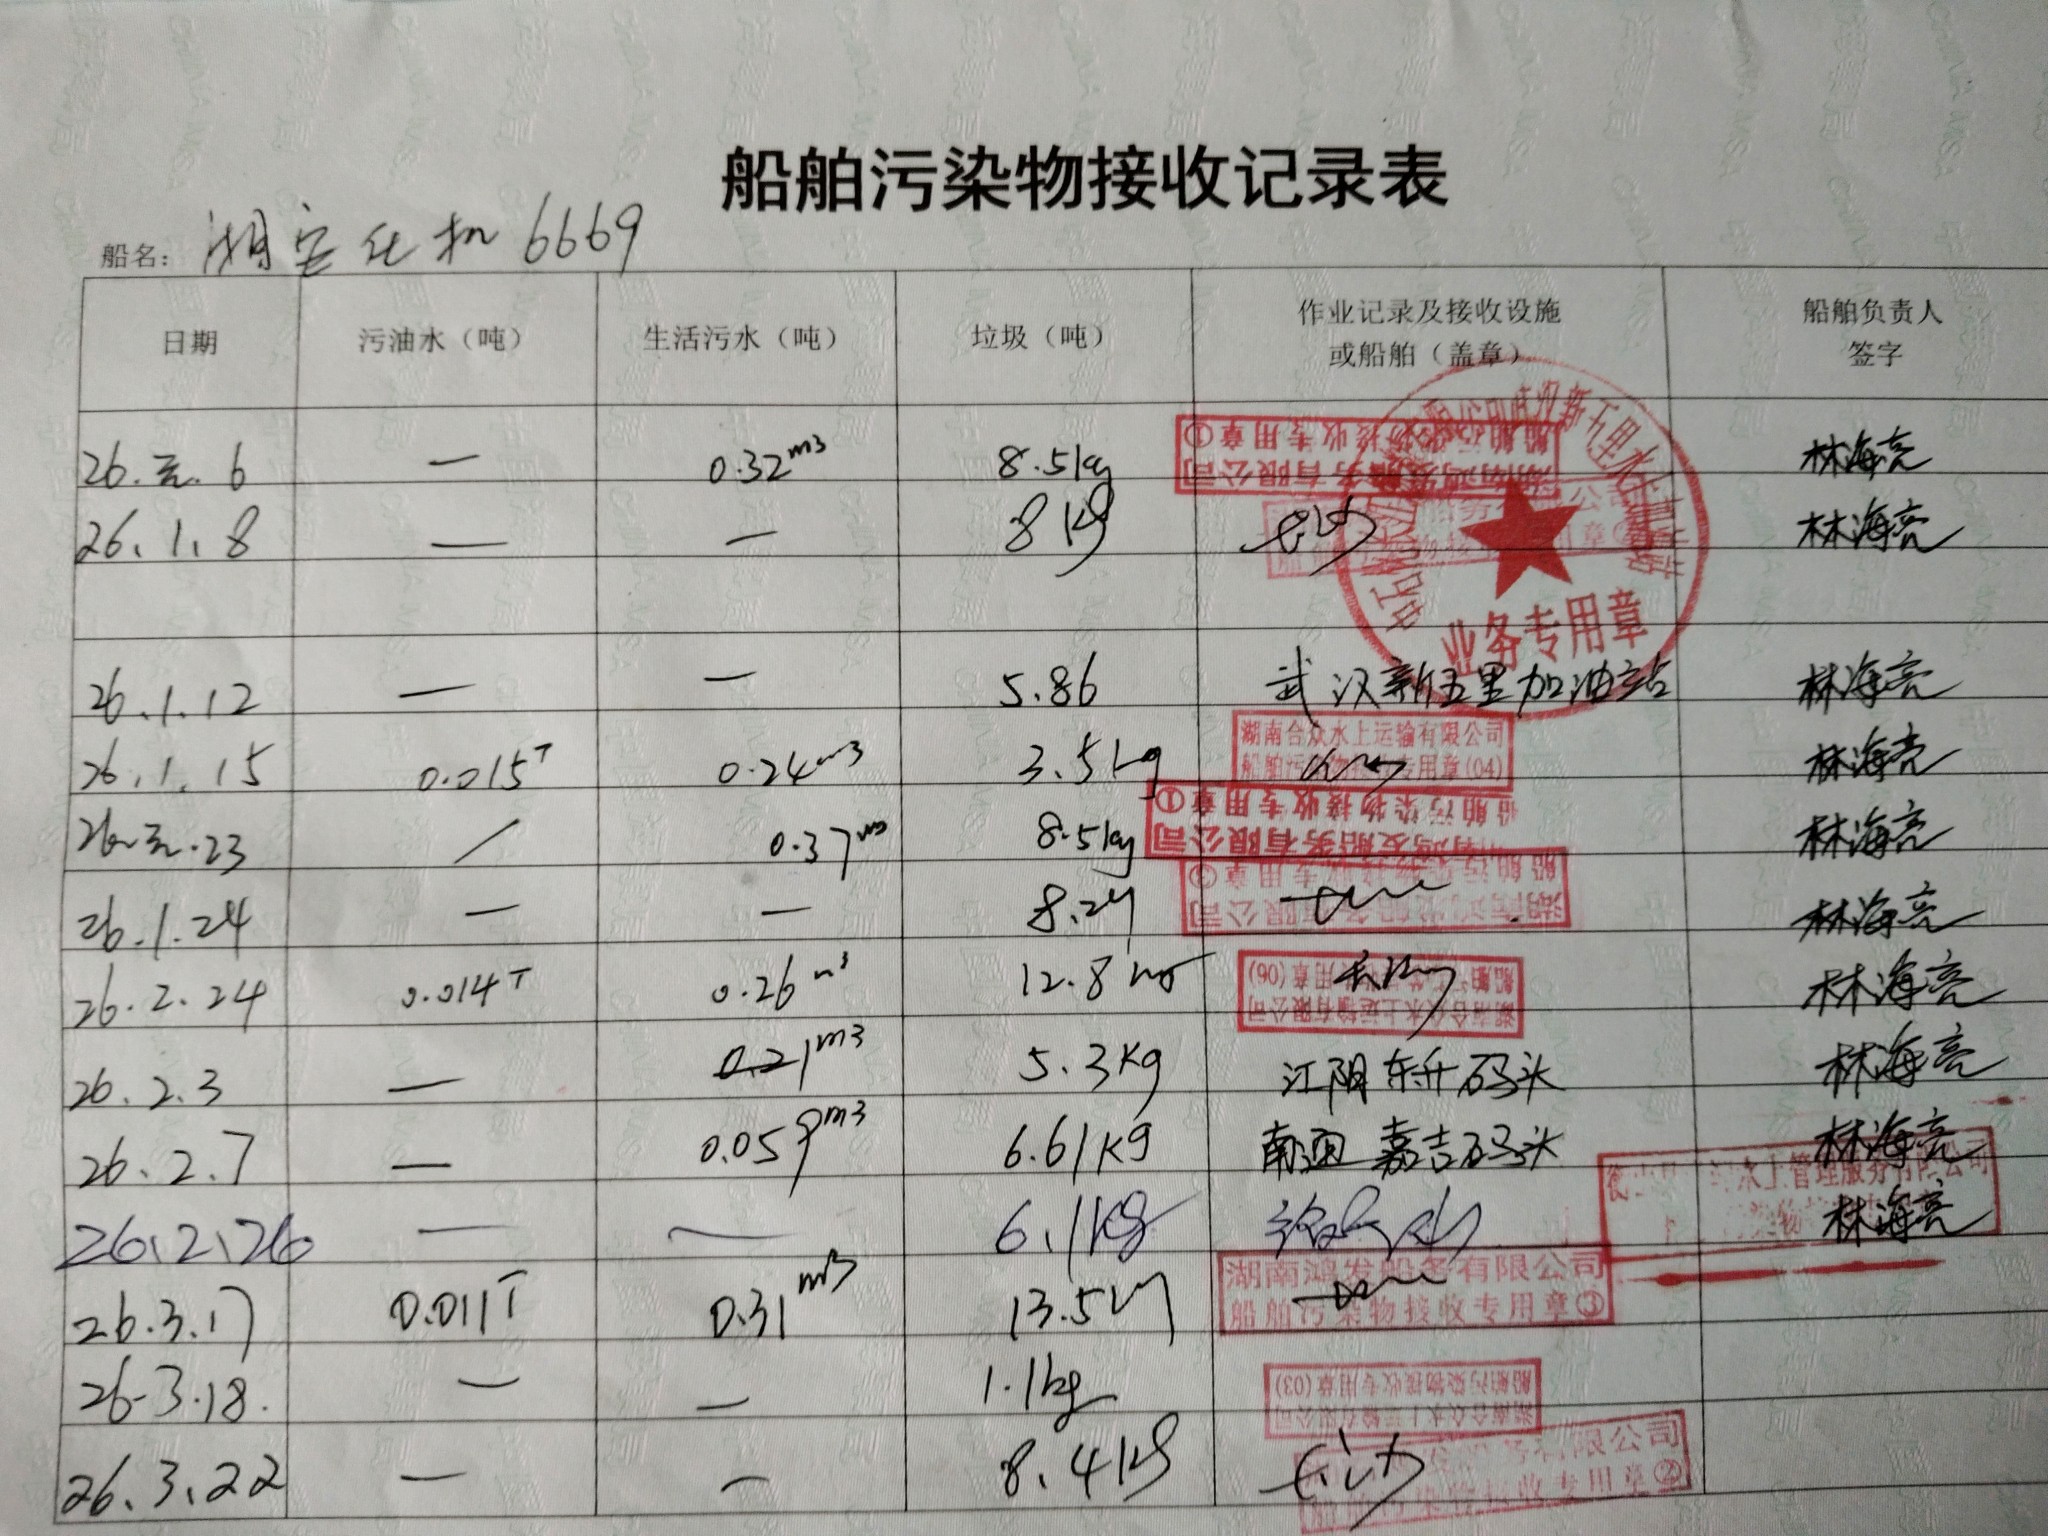 船舶污染物接收记录表
船名： 湘 化机 6669
日期 污油水（吨） 生活污水（吨） 垃圾（吨） 作业记录及接收设施或船舶（盖章） 船舶负责人签字
26.元.6 — 0.32m3 8.5kg 林海亮
26.1.8 — — 8kg 长沙 林海亮
业务专用章
26.1.12 — — 5.86 武汉新五里加油站 林海亮
26.1.15 0.015T 0.24m3 3.5kg 林海亮
湖南合众水上运输有限公司
船舶污染物接收专用章(04)
26.元.23 / 0.37m3 8.5kg 林海亮
湖南鸿发船务有限公司
船舶污染物接收专用章①
26.1.24 — — 8.2kg 林海亮
26.2.24 0.014T 0.26m3 12.8kg 林海亮
湖南合众水上运输有限公司
船舶污染物接收专用章(06)
26.2.3 — 0.21m3 5.3kg 江阴东升码头 林海亮
26.2.7 — 0.059m3 6.61kg 南通嘉吉码头 林海亮
26.2.26 — — 6.1kg 林海亮
水上管理服务有限公司
26.3.17 0.011T 0.31m3 13.5kg
湖南鸿发船务有限公司
船舶污染物接收专用章③
26-3.18. — — 1.1kg
湖南合众水上运输有限公司
船舶污染物接收专用章(03)
26.3.22 — — 8.4kg 长沙
船舶污染物接收专用章②